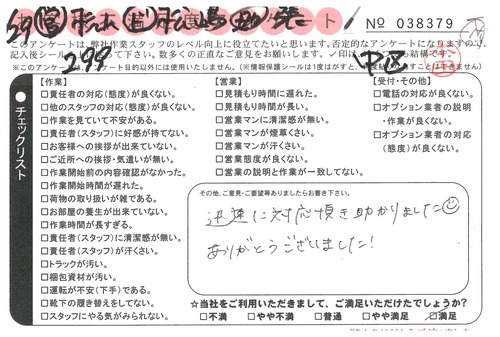 № 038379
このアンケートは、弊社作業スタッフのレベル向上に役立てたいと思います。否定的なアンケートになりますので、
記入後シートで
数多くの正直なご意見をお願いします。
中区
チェックリスト
【作業】
□責任者の対応(態度)が良くない。
□他のスタッフの対応(態度)が良くない。
□作業を見ていて不安がある。
□責任者(スタッフ)に好感が持てない。
□お客様への挨拶が出来ていない。
□ご近所への挨拶・気遣いが無い。
□作業開始前の内容確認がなかった。
□作業開始時間が遅れた。
□荷物の取り扱いが雑である。
□お部屋の養生が出来ていない。
□作業時間が長すぎる。
□責任者(スタッフ)に清潔感が無い。
□責任者(スタッフ)が汗くさい。
□トラックが汚い。
□梱包資材が汚い。
□運転が不安(下手)である。
□靴下の履き替えをしてない。
□スタッフにやる気がみられない。
【営業】
□見積もり時間に遅れた。
□見積もり時間が長い。
□営業マンに清潔感が無い。
□営業マンが煙草くさい。
□営業マンが汗くさい。
□営業態度が良くない。
□営業の説明と作業が一致してない。
【受付・その他】
□電話の対応が良くない。
□オプション業者の説明
・作業が良くない。
□オプション業者の対応
(態度)が良くない。
その他、ご意見・ご要望等ありましたらお書き下さい。
迅速に対応頂き助かりました☺
ありがとうございました!
☆当社をご利用いただきまして、ご満足いただけたでしょうか?
□不満 □やや不満 □普通 □やや満足 ☑満足